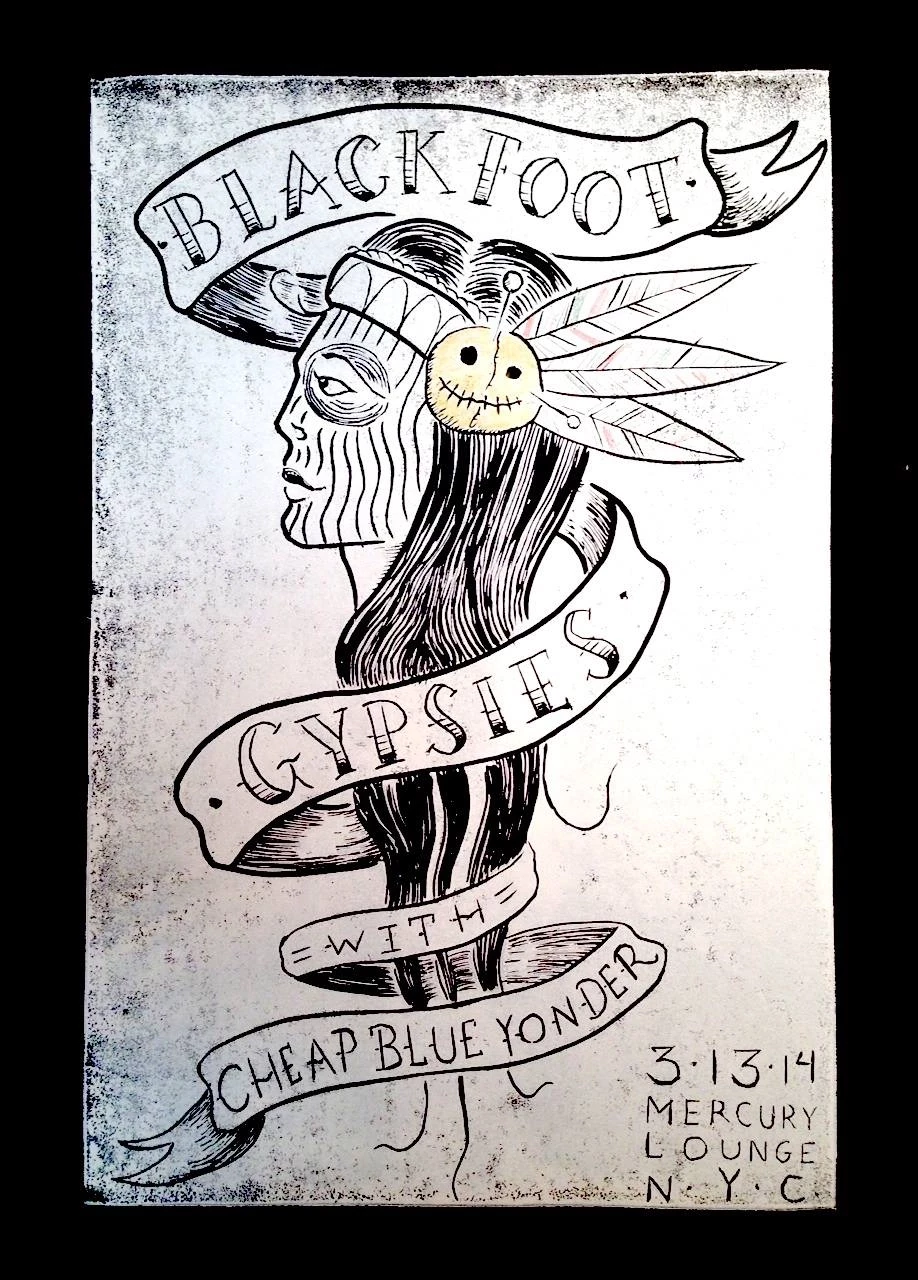 BLACK FOOT
GYPSIES
=WITH=
CHEAP BLUE YONDER
3·13·14
MERCURY
LOUNGE
N·Y·C·